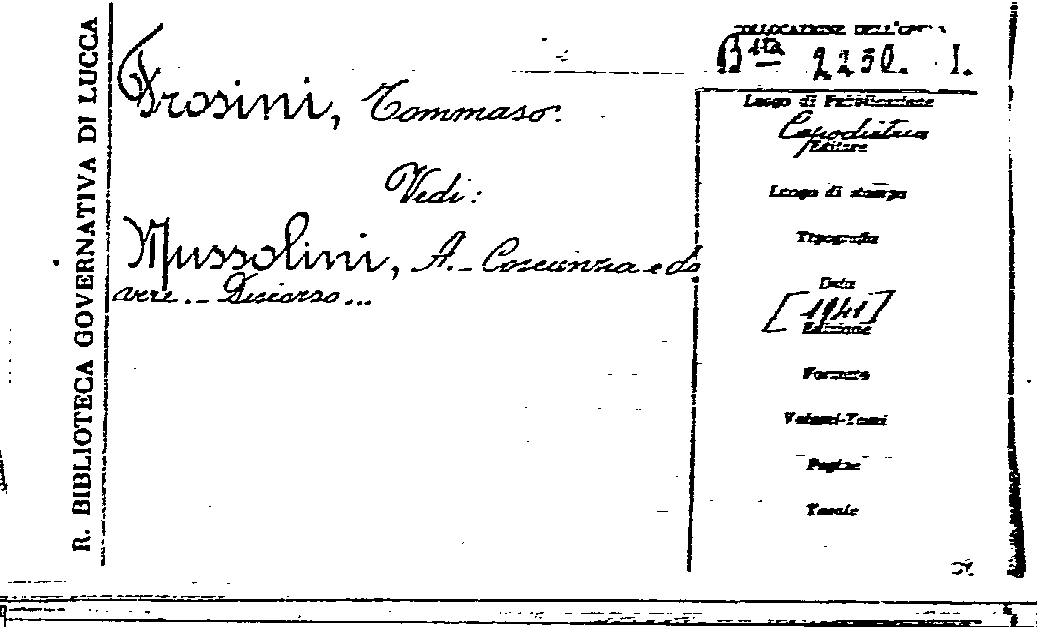 R. BIBLIOTECA GOVERNATIVA DI LUCCA
COLLOCAZIONE DELL'OPERA
Bsta 2230. I.
Frosini, Tommaso.
Vedi:
Mussolini, A. - Coscienza e do
vere. - Discorso...
Luogo di Pubblicazione
Capodistria
Editore
Luogo di stampa
Tipografia
Data
[1941]
Edizione
Formato
Volumi-Tomi
Pagine
Tavole